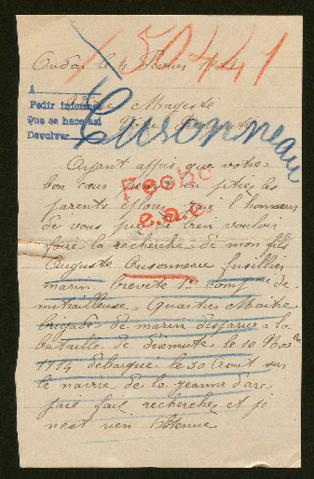 50441
le 4
A
Pedir informes
Que se hace así
Devolver
Cusonneau
Ayant appris que votre
bon cœur prenait en pitiés les
parents l'honneur
de vous de bien vouloir
faire la recherche de mon fils
Fecho
e.a.c.
Auguste Cusonneau fusillier
marin brevete 1re comp de
mitrailleuse. Quartier Maitre
brigade de marin disparu a la
bataille de dixmute le 10 Nov
1914 debarque le 30 Aout sur
le navire de la jeanne d'arc
jaie fait recherches et je
n'est rien obtenue